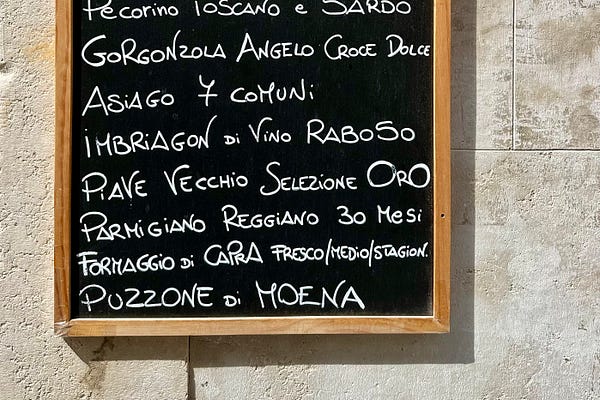 Pecorino Toscano e Sardo
Gorgonzola Angelo Croce Dolce
Asiago 7 comuni
imbriagon di Vino Raboso
Piave Vecchio Selezione Oro
Parmigiano Reggiano 30 Mesi
Formaggio di Capra Fresco/Medio/Stagion.
Puzzone di Moena